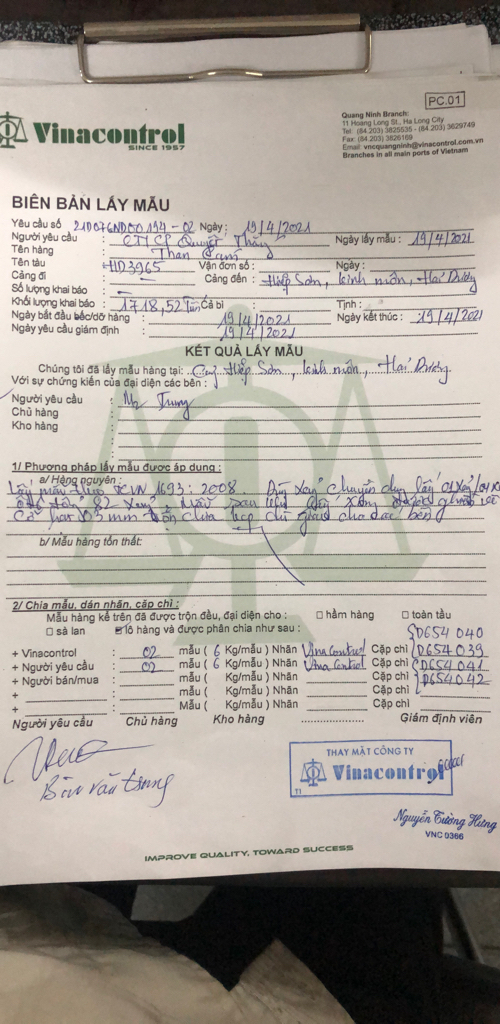 PC.01
Vinacontrol
SINCE 1957
Quang Ninh Branch:
11 Hoang Long St., Ha Long City
Tel: (84.203) 3825535 - (84.203) 3629749
Fax: (84.203) 3826169
Email: vncquangninh@vinacontrol.com.vn
Branches in all main ports of Vietnam
BIÊN BẢN LẤY MẪU
Yêu cầu số 21D07GND00194-02 Ngày: 19/4/2021
Người yêu cầu : CTCP Quyết Thắng Ngày lấy mẫu : 19/4/2021
Tên hàng : Than Cám
Tên tàu : HD3965 Vận đơn số : Ngày :
Cảng đi : Cảng đến : Hiệp Sơn, Kinh môn, Hải Dương
Số lượng khai báo :
Khối lượng khai báo : 1718,52 Tấn Cả bì : Tịnh :
Ngày bắt đầu bốc/dỡ hàng : 19/4/2021 Ngày kết thúc : 19/4/2021
Ngày yêu cầu giám định : 19/4/2021
KẾT QUẢ LẤY MẪU
Chúng tôi đã lấy mẫu hàng tại : Cảng Hiệp Sơn, Kinh môn, Hải Dương
Với sự chứng kiến của đại diện các bên :
Người yêu cầu : Mr Trung
Chủ hàng :
Kho hàng :
1/ Phương pháp lấy mẫu được áp dụng :
a/ Hàng nguyên :
Lấy mẫu theo TCVN 1693:2008.
b/ Mẫu hàng tổn thất:
2/ Chia mẫu, dán nhãn, cặp chì :
Mẫu hàng kể trên đã được trộn đều, đại diện cho : □ hầm hàng □ toàn tầu
□ sà lan ☑ lô hàng và được phân chia như sau :
D654040
+ Vinacontrol : 02 mẫu ( 6 Kg/mẫu ) Nhãn Vinacontrol Cặp chì D654039
+ Người yêu cầu : 02 mẫu ( 6 Kg/mẫu ) Nhãn Vinacontrol Cặp chì D654041
+ Người bán/mua : mẫu ( Kg/mẫu ) Nhãn Cặp chì D654042
+ : Mẫu ( Kg/mẫu ) Nhãn Cặp chì
+ : Mẫu ( Kg/mẫu ) Nhãn Cặp chì
Người yêu cầu Chủ hàng Kho hàng .................. Giám định viên
Bùi Văn Trung
THAY MẶT CÔNG TY
Vinacontrol
T1
Nguyễn Tường Hưng
VNC 0366
IMPROVE QUALITY, TOWARD SUCCESS